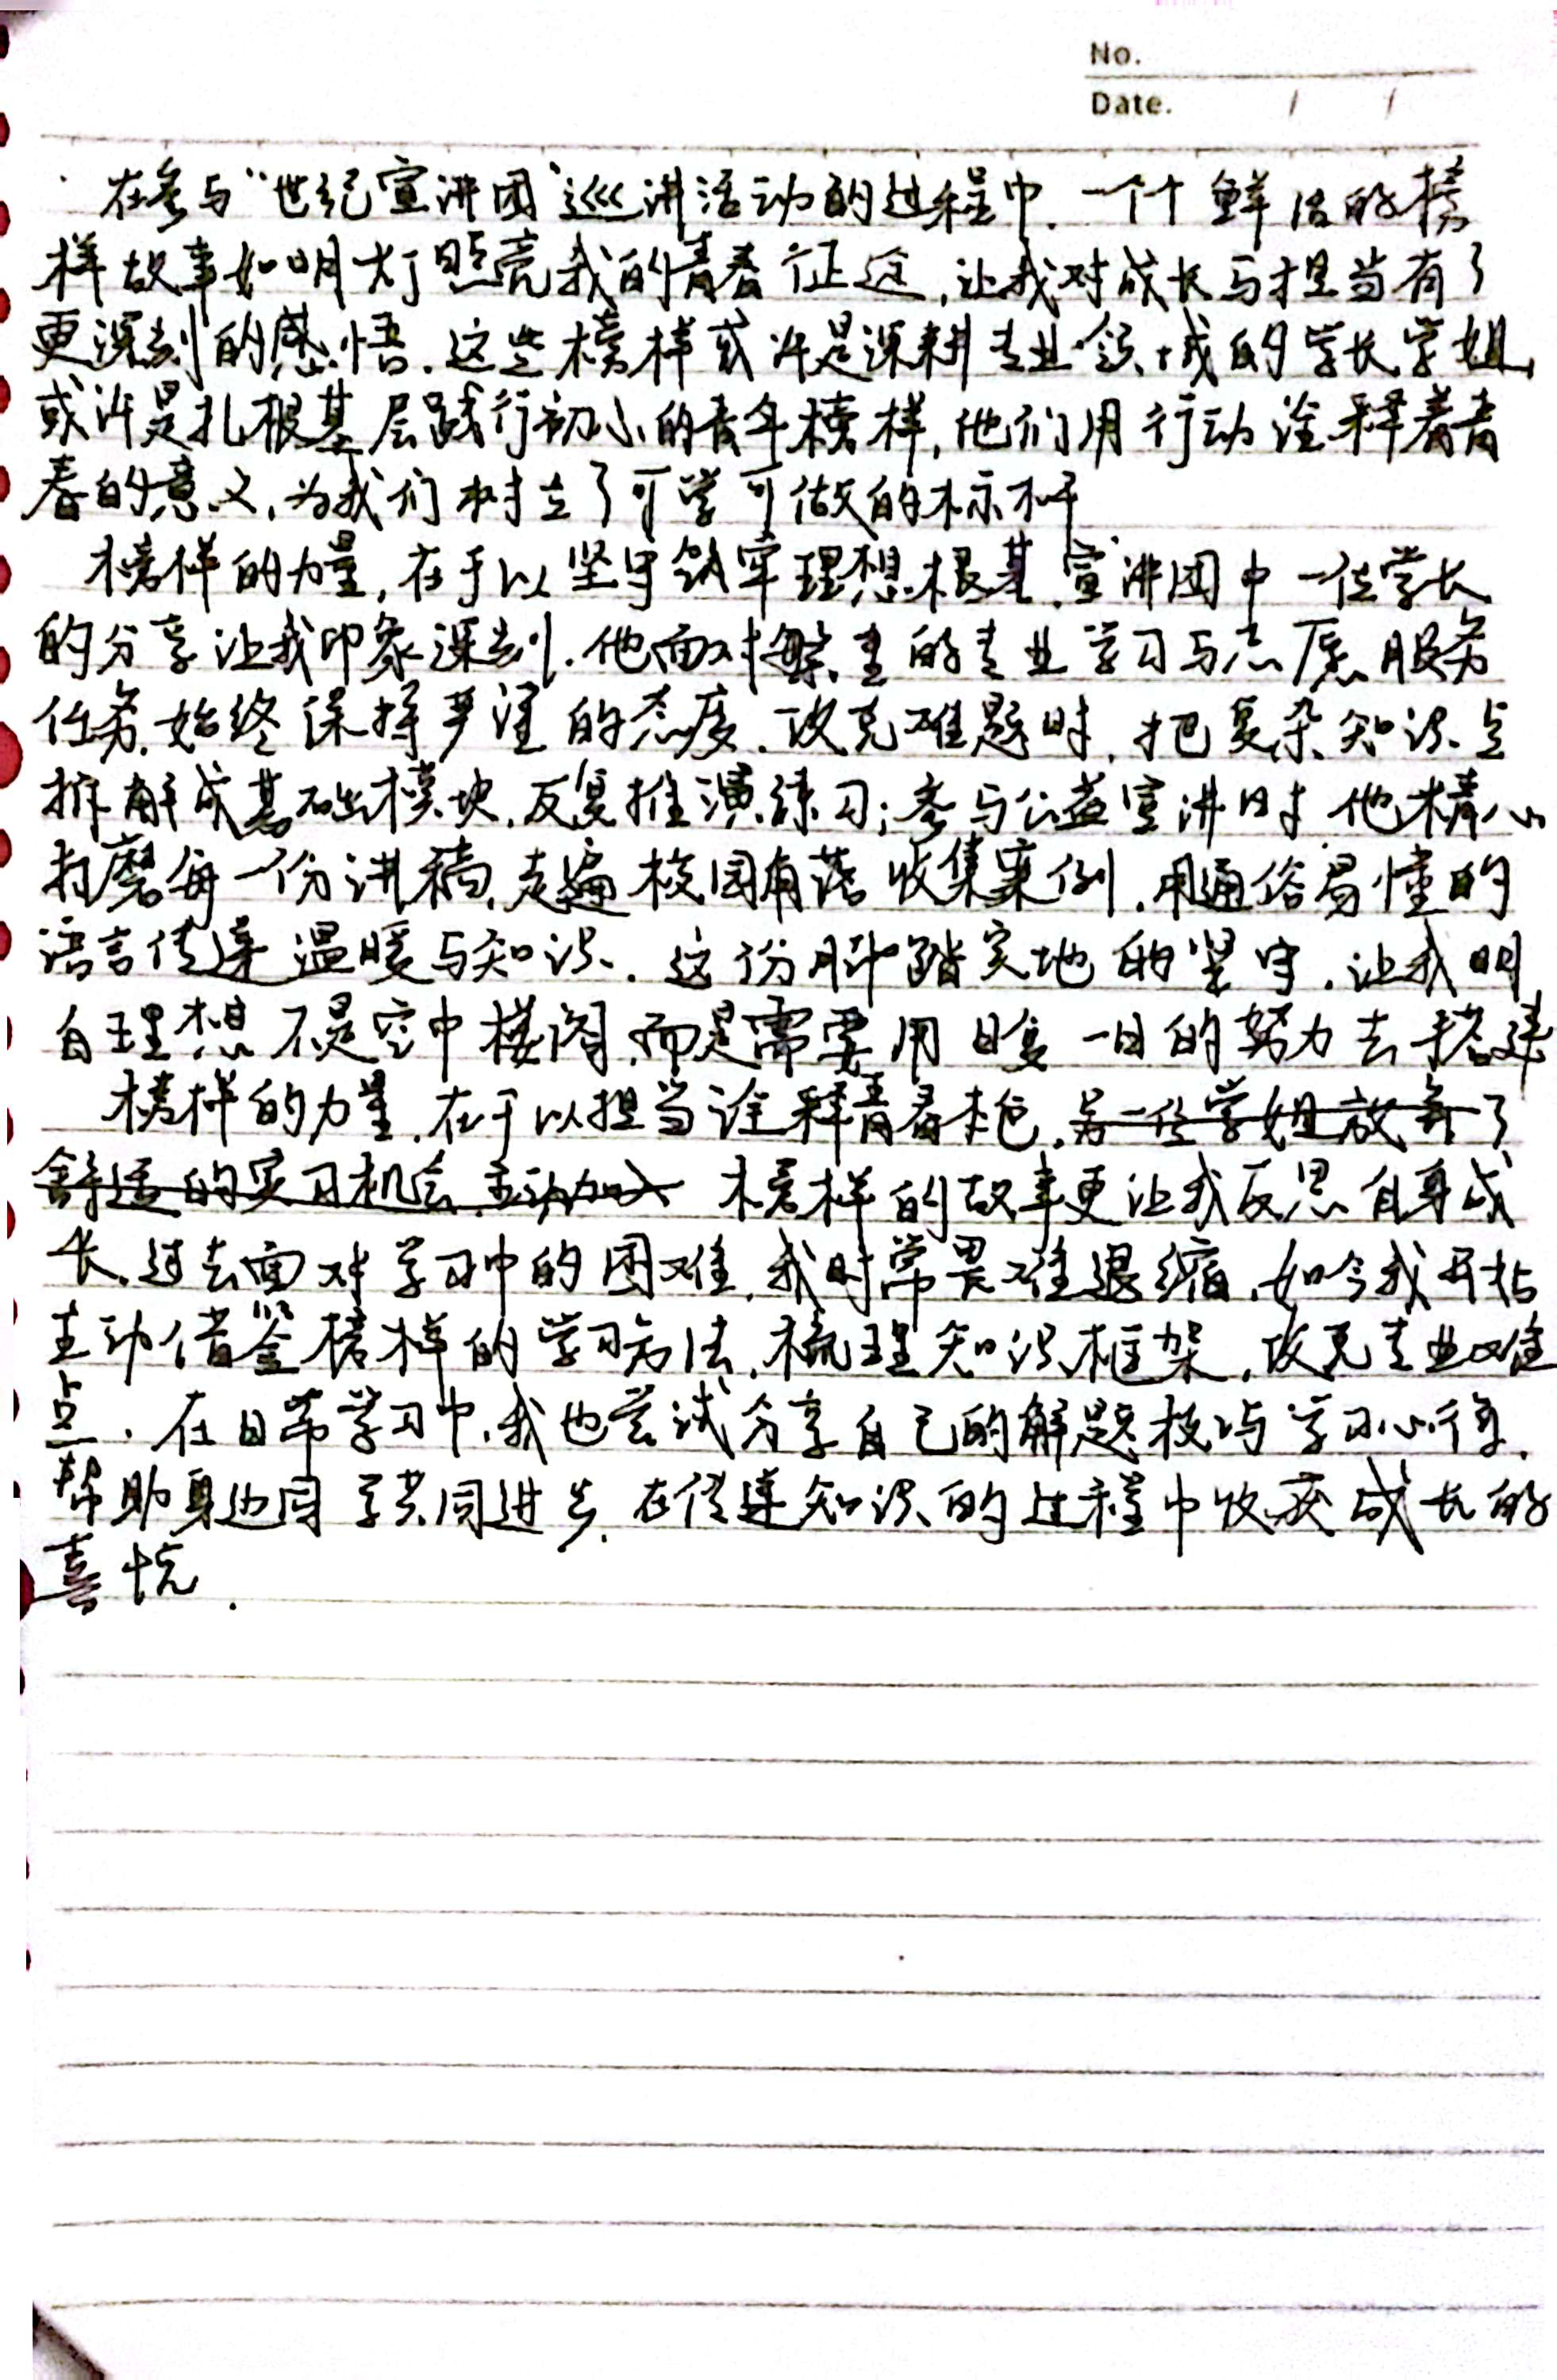 No.
Date. / /
在参与“世纪宣讲团”巡讲活动的过程中，一个个鲜活的榜
样故事如明灯照亮我的青春征途，让我对成长与担当有了
更深刻的感悟．这些榜样或许是深耕专业领域的学长学姐，
或许是扎根基层践行初心的青年榜样，他们用行动诠释着青
春的意义，为我们树立了可学可做的标杆
榜样的力量，在于以坚守筑牢理想根基．宣讲团中一位学长
的分享让我印象深刻．他面对繁重的专业学习与志愿服务
任务，始终保持严谨的态度．攻克难题时，把复杂知识点
拆解成基础模块，反复推演练习；参与公益宣讲时，他精心
打磨每一份讲稿，走遍校园角落收集案例，用通俗易懂的
语言传递温暖与知识．这份脚踏实地的坚守，让我明
白理想不是空中楼阁，而是需要用日复一日的努力去搭建
榜样的力量，在于以担当诠释青春本色．另一位学姐放弃了
舒适的实习机会，主动加入 榜样的故事更让我反思自身成
长，过去面对学习中的困难，我时常畏难退缩，如今我开始
主动借鉴榜样的学习方法，梳理知识框架，攻克专业难
点．在日常学习中，我也尝试分享自己的解题技巧与学习心得，
帮助身边同学共同进步，在传递知识的过程中收获成长的
喜悦．